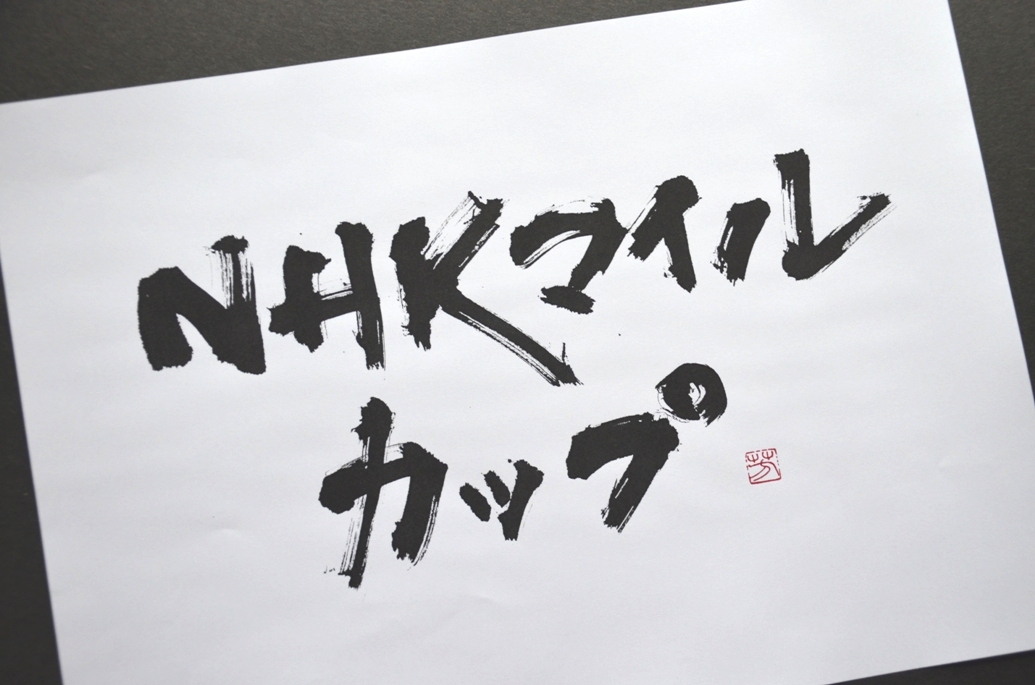 NHKマイル
カップ
芳